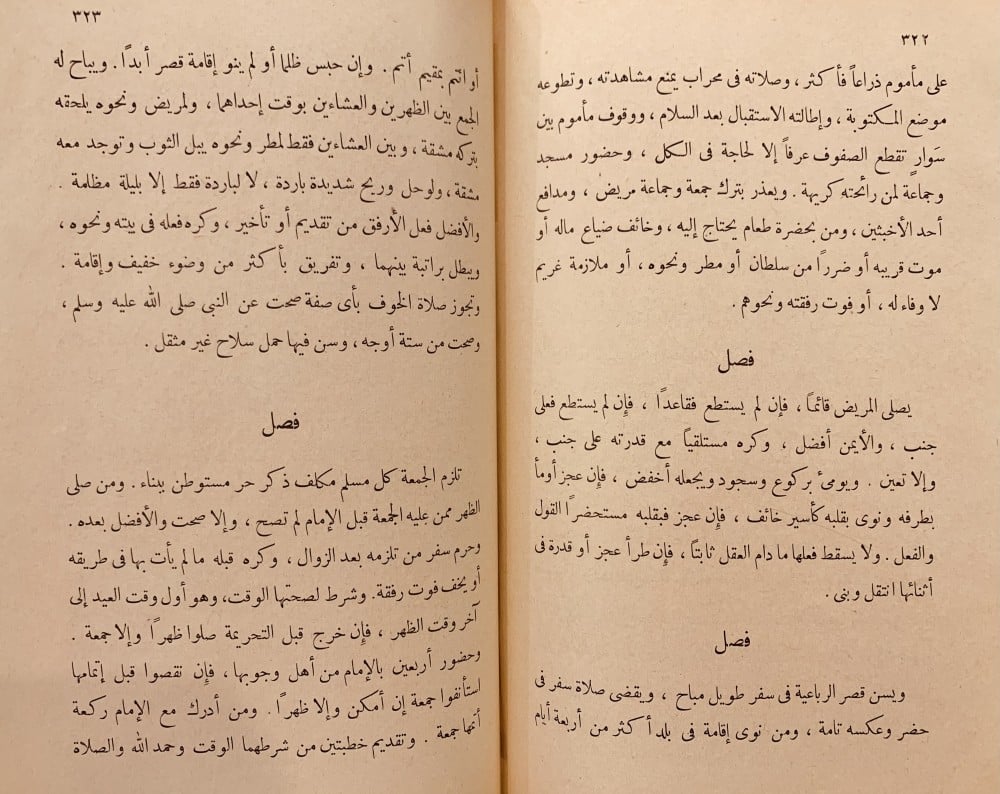 ٣٢٢
على مأموم ذراعاً فأكثر ، وصلاته فى محراب يمنع مشاهدته ، وتطوعه
موضع المكتوبة ، وإطالته الاستقبال بعد السلام ، ووقوف مأموم بين
سَوارٍ تقطع الصفوف عرفاً إلا لحاجة فى الكل ، وحضور مسجد
وجماعة لمن رائحته كريهة . ويعذر بترك جمعة وجماعة مريض ، ومدافع
أحد الأخبثين ، ومن بحضرة طعام يحتاج إليه ، وخائف ضياع ماله أو
موت قريبه أو ضرراً من سلطان أو مطر ونحوه ، أو ملازمة غريم
لا وفاء له ، أو فوت رفقته ونحوهم .
فصل
يصلى المريض قائماً ، فإن لم يستطع فقاعداً ، فإن لم يستطع فعلى
جنب ، والأيمن أفضل ، وكره مستلقياً مع قدرته على جنب ،
وإلا تعين . ويومىٔ بركوع وسجود ويجعله أخفض ، فإن عجز أومأ
بطرفه ونوى بقلبه كأسير خائف ، فإن عجز فبقلبه مستحضراً القول
والفعل . ولا يسقط فعلها ما دام العقل ثابتاً ، فإن طرأ عجز أو قدرة فى
أثنائها انتقل وبنى .
فصل
ويسن قصر الرباعية فى سفر طويل مباح ، ويقضى صلاة سفر فى
حضر وعكسه تامة ، ومن نوى إقامة فى بلد أكثر من أربعة أيام
٣٢٣
أو ائتم بمقيم أتم . وإن حبس ظلما أو لم ينو إقامة قصر أبداً . ويباح له
الجمع بين الظهرين والعشاءين بوقت إحداهما ، ولمريض ونحوه يلحقه
بتركه مشقة ، وبين العشاءين فقط لمطر ونحوه يبل الثوب وتوجد معه
مشقة ، ولوحل وريح شديدة باردة ، لا لباردة فقط إلا بليلة مظلمة .
والأفضل فعل الأرفق من تقديم أو تأخير ، وكره فعله فى بيته ونحوه ،
ويبطل براتبة بينهما ، وتفريق بأكثر من وضوء خفيف وإقامة .
وتجوز صلاة الخوف بأى صفة صحت عن النبى صلى الله عليه وسلم ،
وصحت من ستة أوجه ، وسن فيها حمل سلاح غير مثقل .
فصل
تلزم الجمعة كل مسلم مكلف ذكر حر مستوطن ببناء . ومن صلى
الظهر ممن عليه الجمعة قبل الإمام لم تصح ، وإلا صحت والأفضل بعده .
وحرم سفر من تلزمه بعد الزوال ، وكره قبله مالم يأت بها فى طريقه
أو يخف فوت رفقة. وشرط لصحتها الوقت، وهو أول وقت العيد إلى
آخر وقت الظهر ، فإن خرج قبل التحريمة صلوا ظهراً وإلا جمعة .
وحضور أربعين بالإمام من أهل وجوبها ، فإن نقصوا قبل إتمامها
استأنفوا جمعة إن أمكن وإلا ظهراً . ومن أدرك مع الإمام ركعة
أتمها جمعة . وتقديم خطبتين من شرطهما الوقت وحمد الله والصلاة